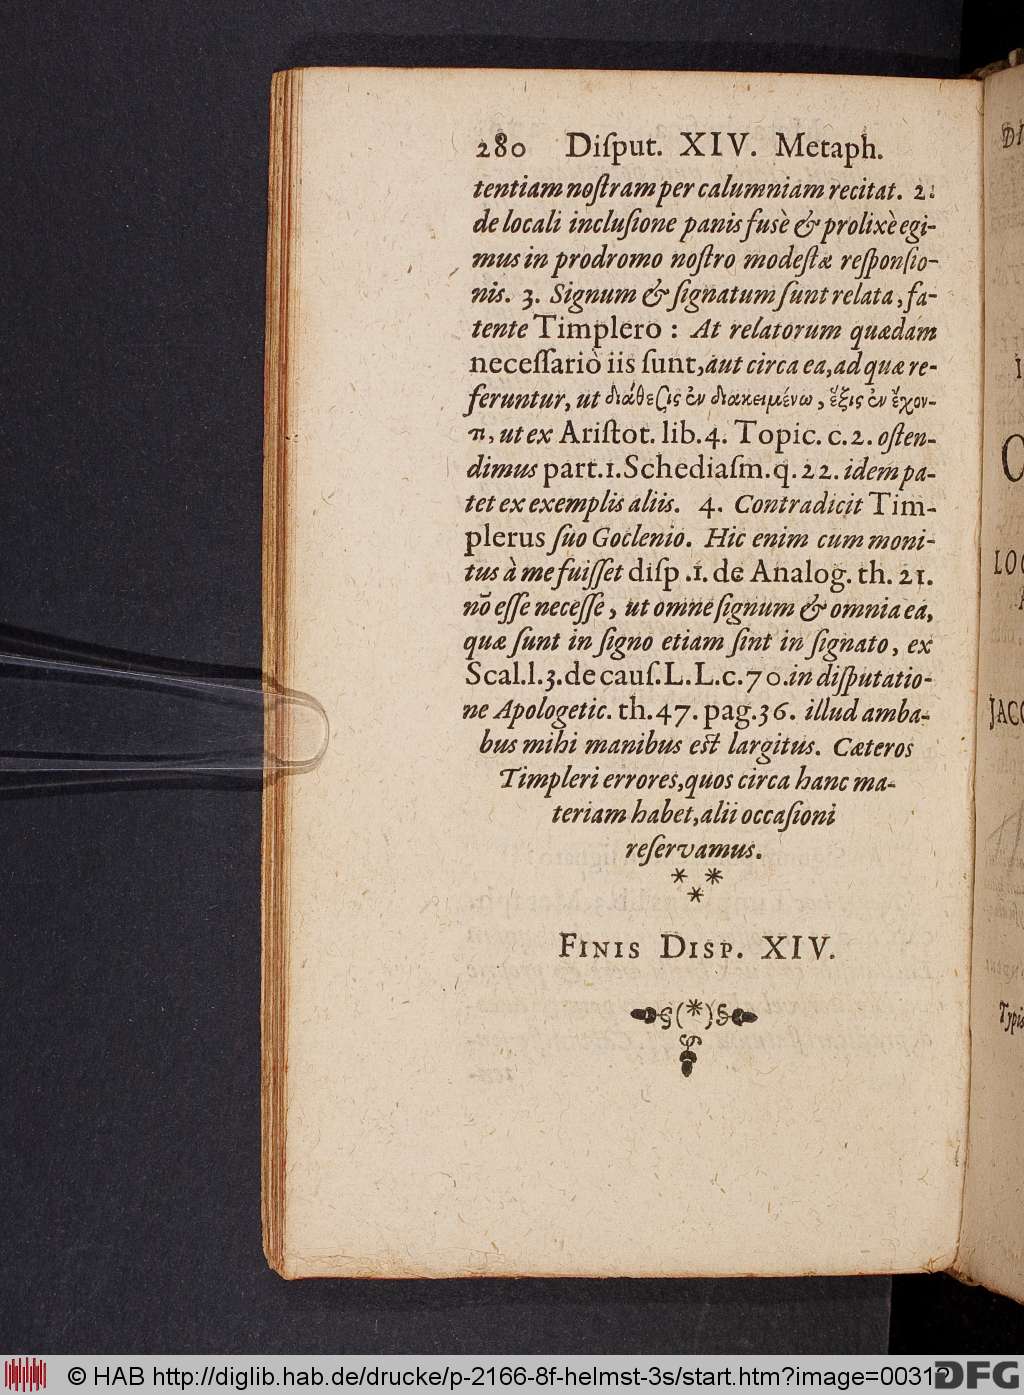 280 Diſput. XIV. Metaph.
tentiam noſtram per calumniam recitat. 2.
de locali incluſione panis fusè & prolixè egi-
mus in prodromo noſtro modeſtæ reſponſio-
nis. 3. Signum & ſignatum ſunt relata, fa-
tente Timplero : At relatorum quædam
neceſſariò iis ſunt, aut circa ea, ad quæ re-
feruntur, ut διάθεζις ἐν διακειμένω, ἕξις ἐν ἔχον-
τι, ut ex Ariſtot. lib. 4. Topic. c. 2. oſten-
dimus part. 1. Schediaſm. q. 22. idem pa-
tet ex exemplis aliis. 4. Contradicit Tim-
plerus ſuo Goclenio. Hic enim cum moni-
tus à me fuiſſet diſp .1. de Analog. th. 21.
nō eſſe neceſſe, ut omne ſignum & omnia ea,
quæ ſunt in ſigno etiam ſint in ſignato, ex
Scal. l. 3. de cauſ. L. L. c. 70. in diſputatio-
ne Apologetic. th. 47. pag. 36. illud amba-
bus mihi manibus eſt largitus. Cæteros
Timpleri errores, quos circa hanc ma-
teriam habet, alii occaſioni
reſervamus.
* * *
FINIS DISP. XIV.
LOC
JACO
Typis
© HAB http://diglib.hab.de/drucke/p-2166-8f-helmst-3s/start.htm?image=00312
DFG